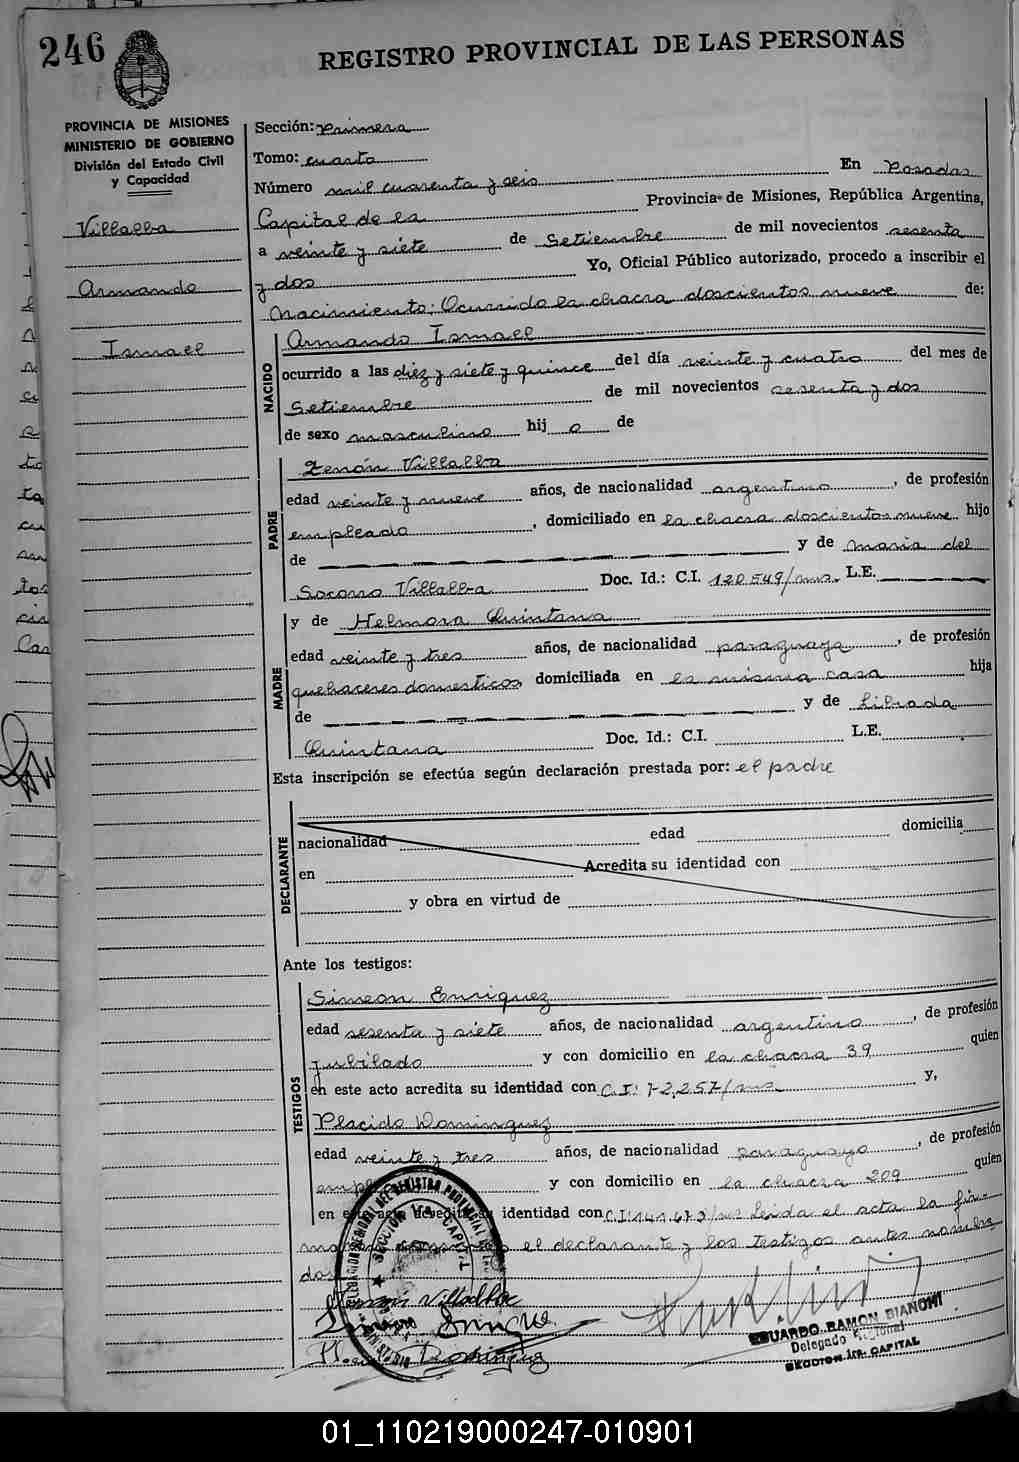 246
REGISTRO PROVINCIAL DE LAS PERSONAS
PROVINCIA DE MISIONES
MINISTERIO DE GOBIERNO
División del Estado Civil
y Capacidad
Villalba
Armando
Ismael
Sección: Primera
Tomo: cuarto
Número mil cuarenta y seis En Posadas
Capital de la Provincia de Misiones, República Argentina,
a veinte y siete de Setiembre de mil novecientos sesenta
y dos Yo, Oficial Público autorizado, procedo a inscribir el
Nacimiento: Ocurrido la chacra doscientos nueve de:
NACIDO
Armando Ismael
ocurrido a las diez y siete y quince del día veinte y cuatro del mes de
Setiembre de mil novecientos sesenta y dos
de sexo masculino hij o de
PADRE
Zenón Villalba
edad veinte y nueve años, de nacionalidad argentino, de profesión
empleado, domiciliado en la chacra doscientos nueve hijo
de y de Maria del
Socorro Villalba Doc. Id.: C.I. 120.549/mns. L.E.
MADRE
y de Helmora Quintana
edad veinte y tres años, de nacionalidad paraguaya, de profesión
quehaceres domesticos domiciliada en la misma casa hija
de y de Librada
Quintana Doc. Id.: C.I. L.E.
Esta inscripción se efectúa según declaración prestada por: el padre
DECLARANTE
nacionalidad edad domicilia
en Acredita su identidad con
y obra en virtud de
Ante los testigos:
TESTIGOS
Simeon Enriquez
edad sesenta y siete años, de nacionalidad argentino, de profesión
jubilado y con domicilio en la chacra 39 quien
en este acto acredita su identidad con C.I: 72,257/mns y,
Placido Dominguez
edad veinte y tres años, de nacionalidad paraguayo, de profesión
y con domicilio en la chacra 209 quien
en este acto acredita su identidad con C.I: Leida el acta la fir-
el declarante y los testigos antes nombra
dos
Villalba
Dominguez
SECCION 1ra. CAPITAL
EDUARDO RAMON BIANCHI
Delegado Regional
SECCION 1ra. CAPITAL
01_110219000247-010901